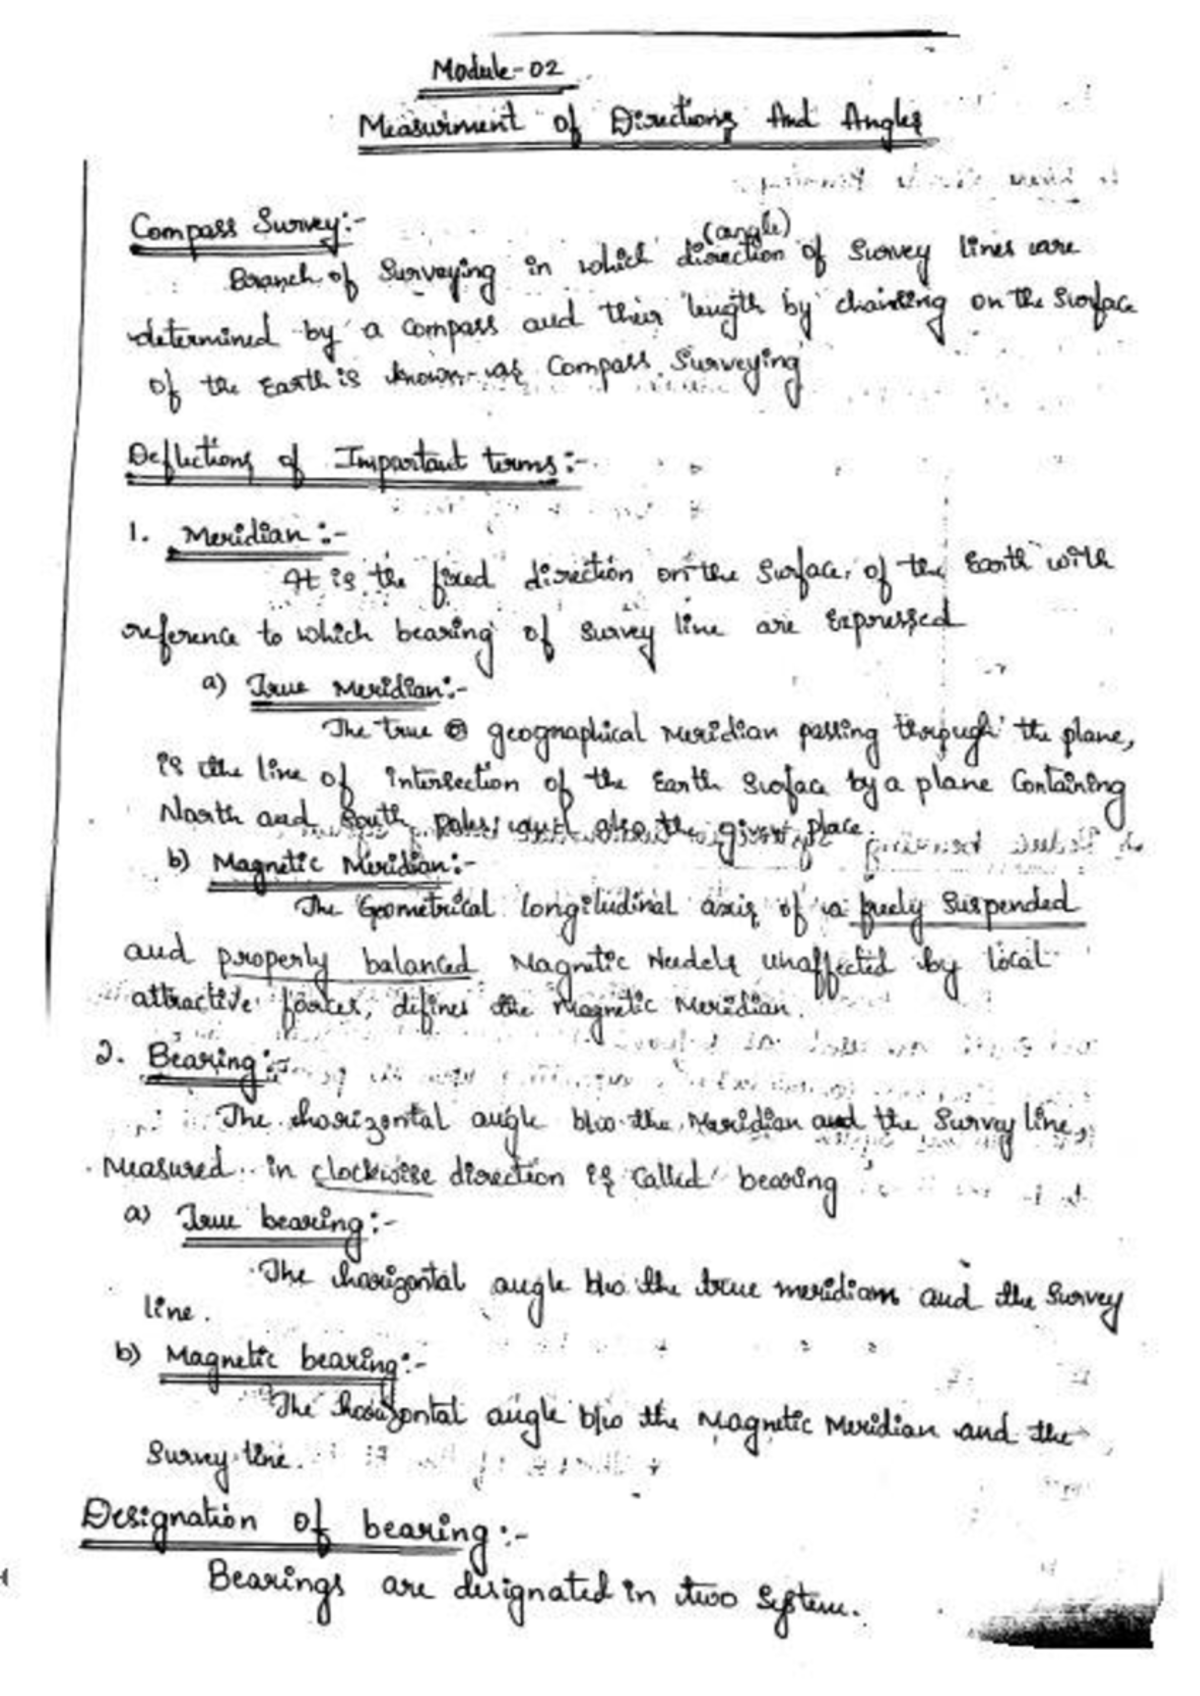 Module-02
Measurment of Directions And Angles
Compass Survey:-
(angle)
Branch of Surveying in which direction of Survey lines are
determined by a compass and their length by chaining on the Surface
of the Earth is known as Compass Surveying
Deflections of Important terms:-
1. Meridian:-
It is the fixed direction on the Surface of the Earth with
reference to which bearing of survey line are Expressed
a) True Meridian:-
The true geographical Meridian passing through the plane,
is the line of intersection of the Earth Surface by a plane Containing
North and South poles, and also the given place.
b) Magnetic Meridian:-
The Geometrical longitudinal axis of a freely Suspended
and properly balanced Magnetic Needele unaffected by local
attractive forces, defines the Magnetic Meridian.
2. Bearing:-
The horizontal angle b/w the Meridian and the Survey line,
Measured in clockwise direction is Called bearing
a) True bearing:-
The horizontal angle b/w the true meridian and the Survey
line.
b) Magnetic bearing:-
The horizontal angle b/w the Magnetic Meridian and the
Survey line.
Designation of bearing:-
Bearings are designated in two System.